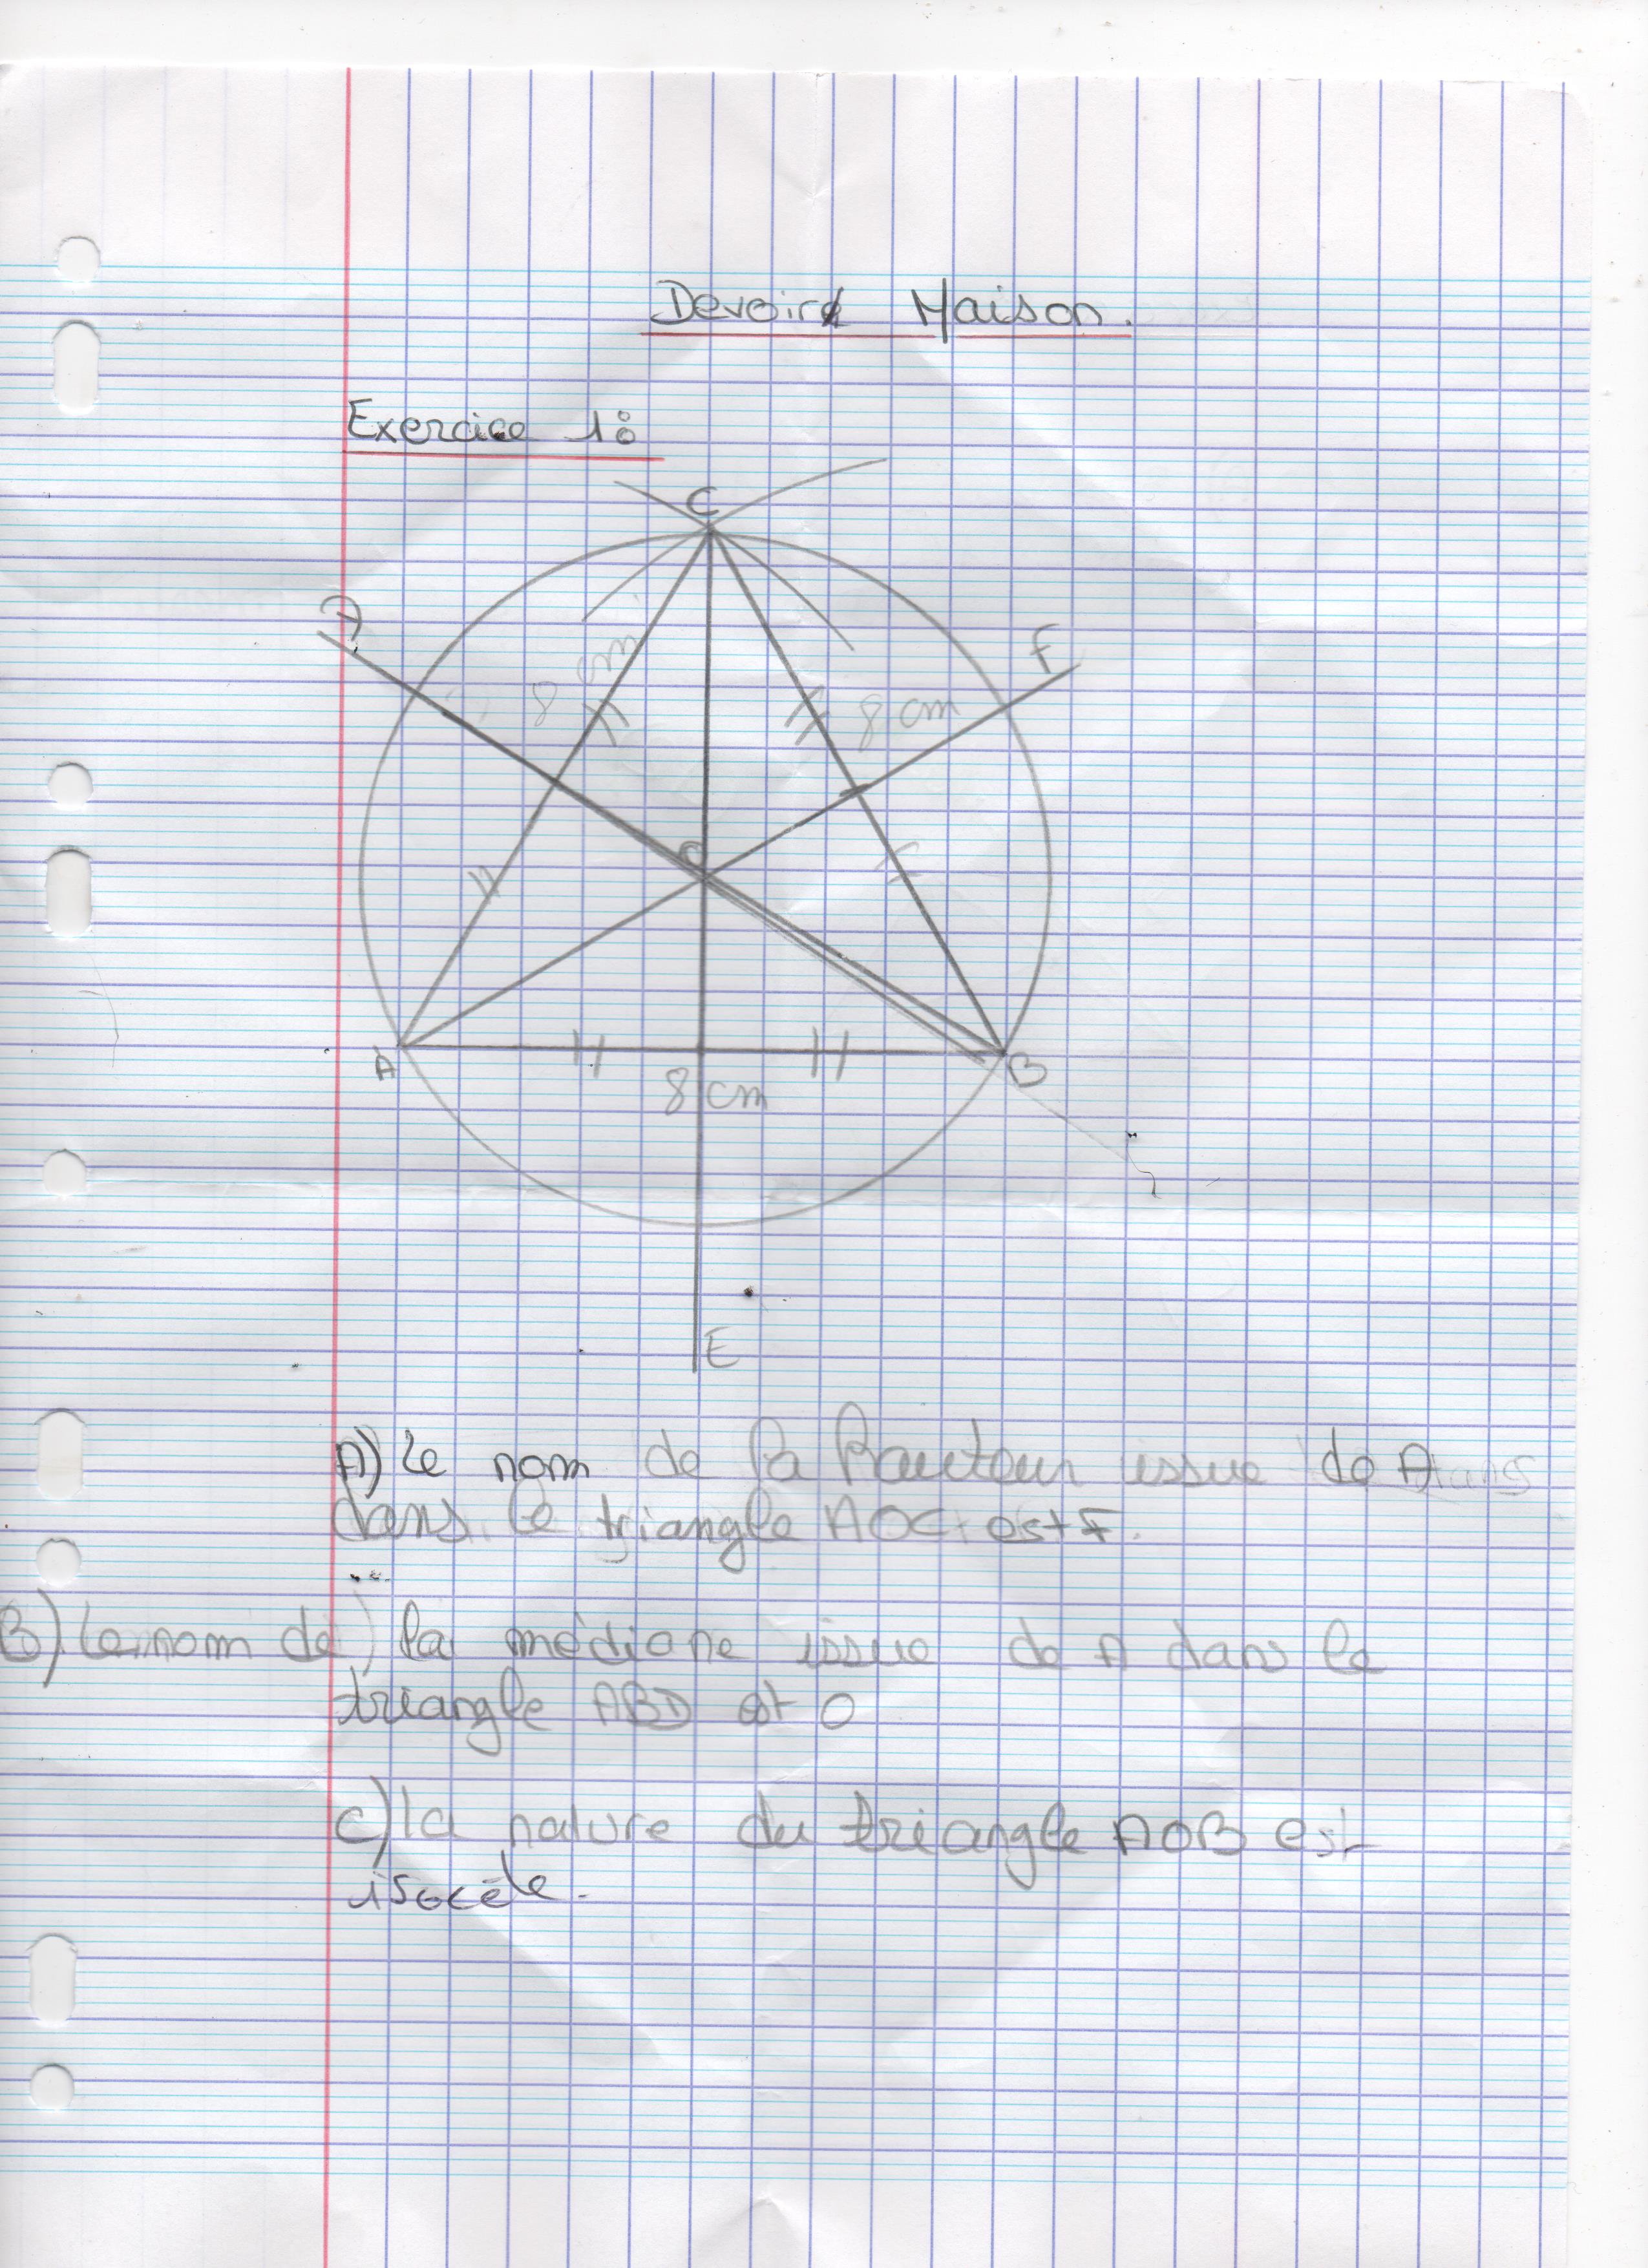 Devoir Maison.
Exercice 1:
C
F
8 cm
8 cm
O
A
B
8 cm
E
A) Le nom de la hauteur issue de A
dans le triangle AOC est F.
B) Le nom de la médiane issue de A dans le
triangle ABD est O
C) la nature du triangle AOB est
isocèle.